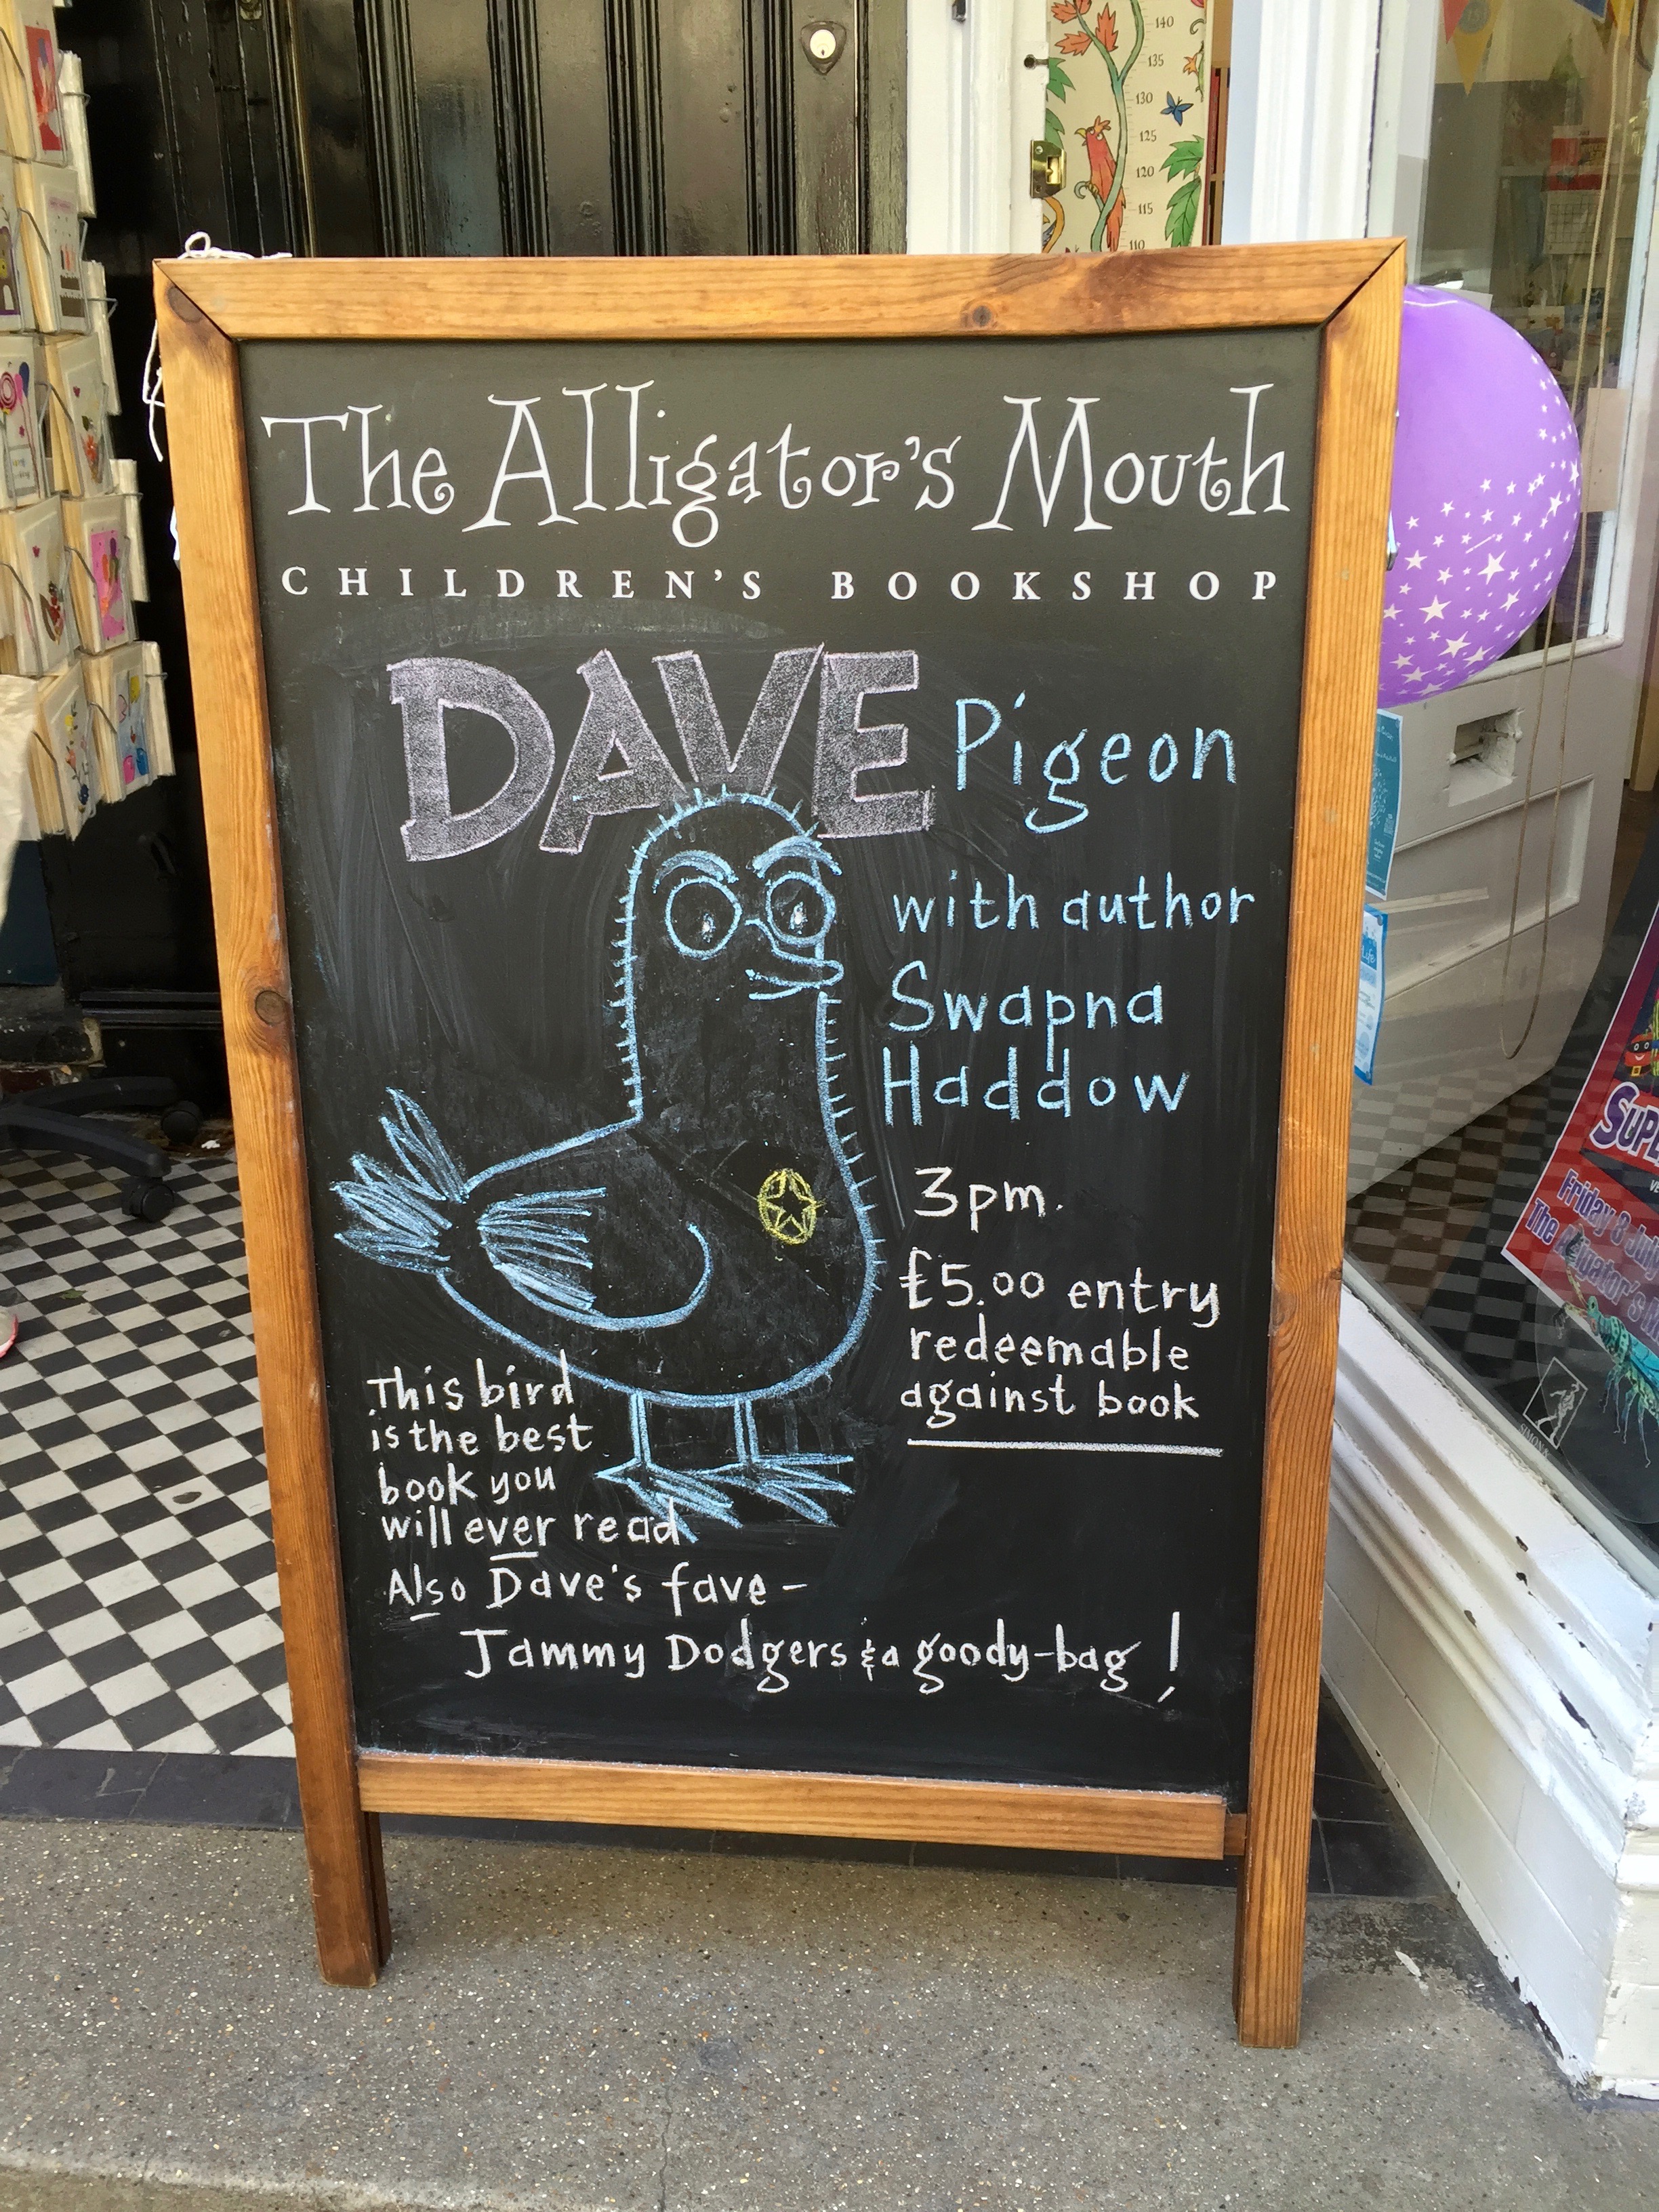 The Alligator's Mouth
CHILDREN'S BOOKSHOP
DAVE Pigeon
with author
Swapna
Haddow
3pm.
£5.00 entry
redeemable
against book
This bird
is the best
book you
will ever read
Also Dave's fave –
Jammy Dodgers & a goody-bag!
140
135
130
125
120
115
110
Friday 8 July
The Alligator's